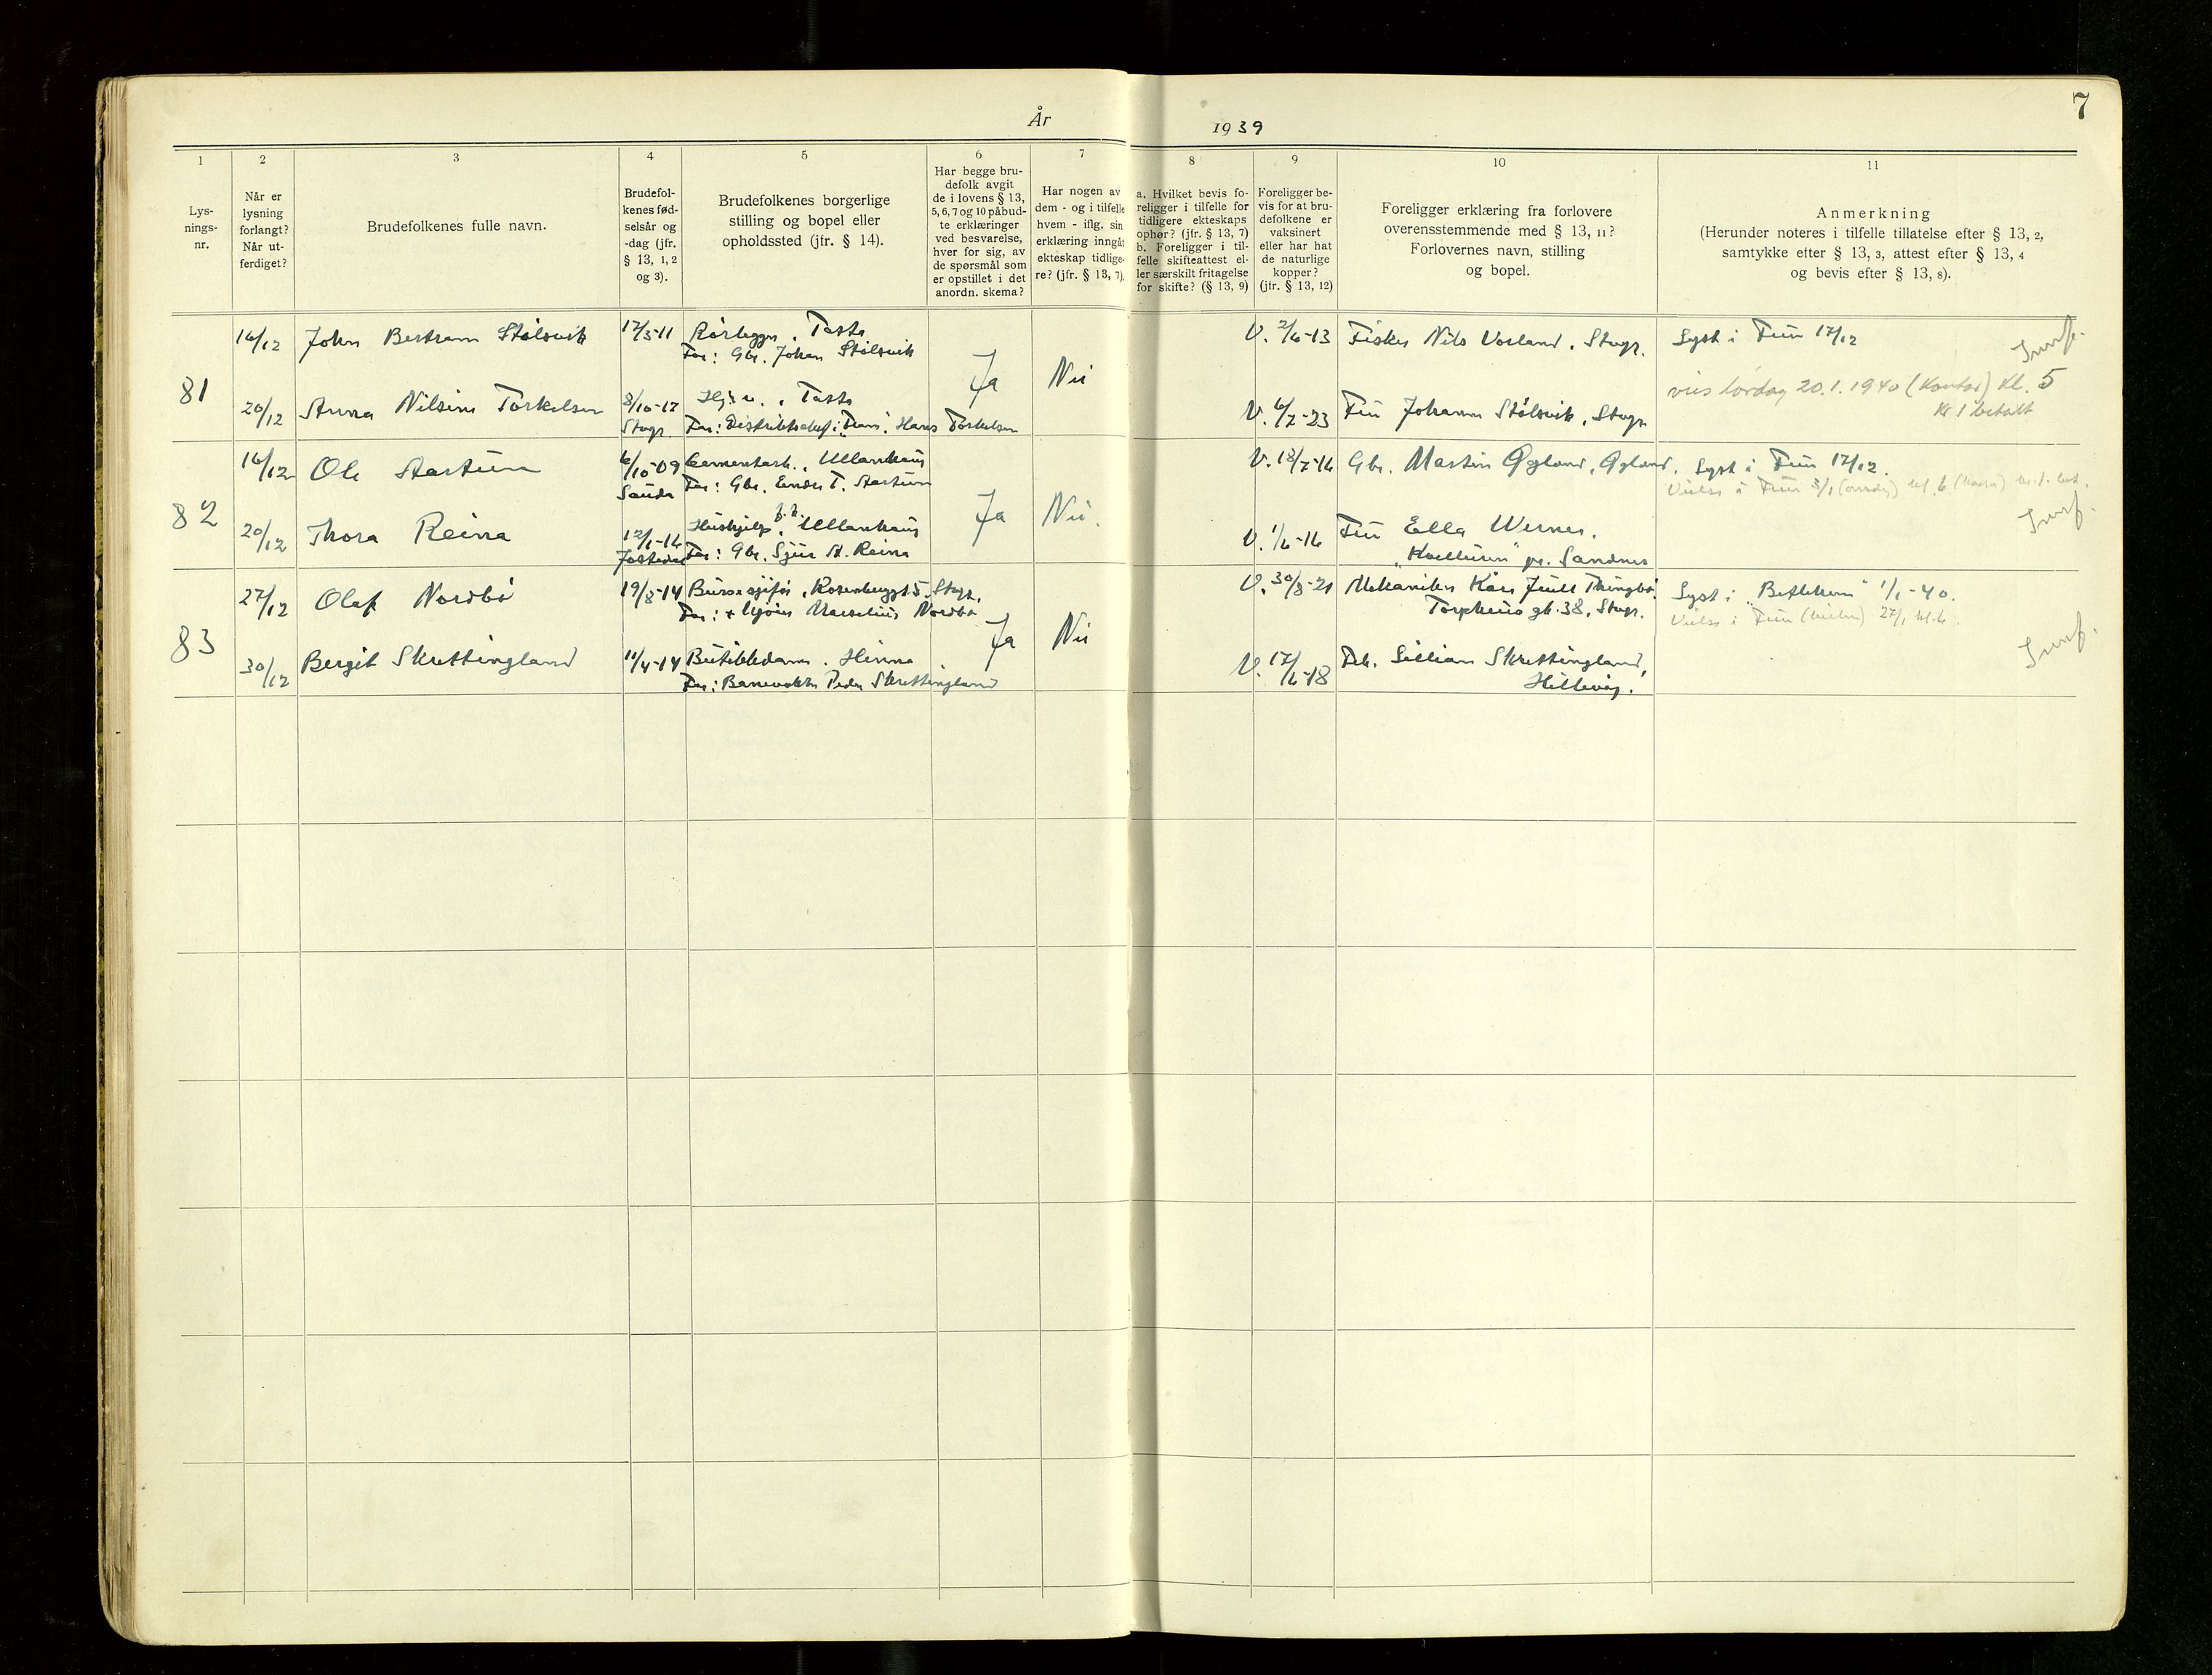 År 1939
7
1
Lys-
nings-
nr.
2
Når er
lysning
forlangt?
Når ut-
ferdiget?
3
Brudefolkenes fulle navn.
4
Brudefol-
kenes fød-
selsår og
-dag (jfr.
§ 13, 1, 2
og 3).
5
Brudefolkenes borgerlige
stilling og bopel eller
opholdssted (jfr. § 14).
6
Har begge bru-
defolk avgit
de i lovens § 13,
5, 6, 7 og 10 påbud-
te erklæringer
ved besvarelse,
hver for sig, av
de spørsmål som
er opstillet i det
anordn. skema?
7
Har nogen av
dem - og i tilfelle
hvem - iflg. sin
erklæring inngåt
ekteskap tidlige-
re? (jfr. § 13, 7).
8
a. Hvilket bevis fo-
religger i tilfelle for
tidligere ekteskaps
ophør? (jfr. § 13, 7)
b. Foreligger i til-
felle skifteattest el-
ler særskilt fritagelse
for skifte? (§ 13, 9)
9
Foreligger be-
vis for at bru-
defolkene er
vaksinert
eller har hat
de naturlige
kopper?
(jfr. § 13, 12)
10
Foreligger erklæring fra forlovere
overensstemmende med § 13, 11?
Forlovernes navn, stilling
og bopel.
11
Anmerkning
(Herunder noteres i tilfelle tillatelse efter § 13, 2,
samtykke efter § 13, 3, attest efter § 13, 4
og bevis efter § 13, 8).
81
16/12
John Bertram Stølsvik
17/3-11
Rørlegger, Tasta
Far: Gbr. Johan Stølsvik
20/12
Anna Nilsine Torkelsen
8/10-17
Stvgr.
Tasta
Far: Distriktschef i Hans Torkelsen
Ja
Nei
V. 2/6-13
Fisker Nils Vorland, Stvgr.
V. 6/7-23
Fru Johanna Stølsvik, Stvgr.
Lyst i Frue 17/12
vies lørdag 20.1.1940 (Kontor) kl. 5
Kr. 1 betalt
82
16/12
Ole Sartun
6/10-09
Sauda
Cementarb., Ullanhaug
Far: Gbr. Endre T. Sartun
20/12
Thora Reina
12/1-16
Jostedal
Hushjelp, f.h. Ullanhaug
Far: Gbr. Sjur A. Reina
Ja
Nei.
V. 18/7-16
Gbr. Martin Øgland, Øgland.
V. 1/6-16
Fru Ella Wernes.
pr. Sandnes
Lyst i Frue 17/12.
Vielse i Frue
83
27/12
Olaf Nordbø
19/8-14
Busssjåfør, Rosenberggt. 5, Stvgr.
Far: + Marselius Nordbø
30/12
Bergit Skrettingland
11/4-14
Butikkdame. Hinna
Far: Banevokter Peder Skrettingland
Ja
Nei
V. 30/8-21
Mekaniker Kåre Juell Thingbø,
38, Stvgr.
V. 17/6-18
Frk. Lillian Skrettingland,
Hillevåg.
Lyst i "Betlehem" 1/1-40.
Vielse i Frue 27/1 kl. 6.